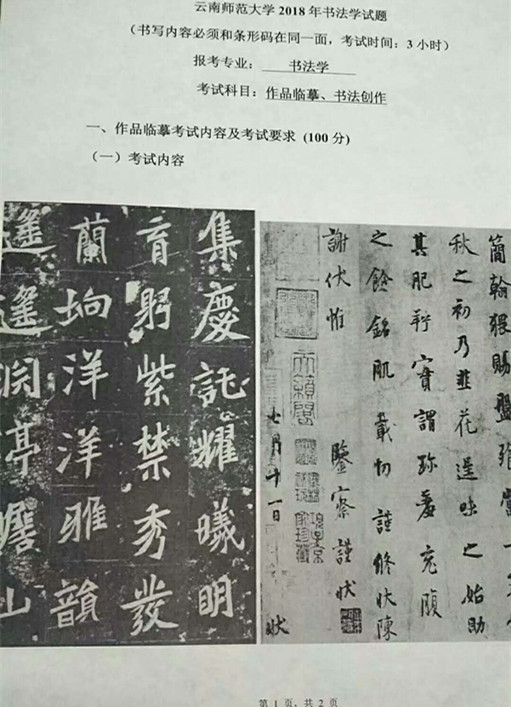 云南师范大学 2018 年书法学试题
（书写内容必须和条形码在同一面，考试时间：3 小时）
报考专业： 书法学
考试科目：作品临摹、书法创作
一、作品临摹考试内容及考试要求 (100 分)
（一）考试内容
集慶託耀曦明
育躬紫禁秀發
蘭坰洋洋雅韻
遙遙
簡翰猥賜盤飧當一
秋之初乃韭花逞味之始助
其肥羜實謂珍羞充腹
之餘銘肌載切謹修狀陳
謝伏惟 鑒察謹狀
七月十一日 狀
第 1 页，共 2 页